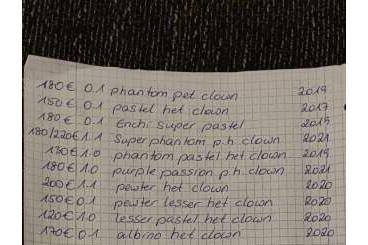 180€ 0.1 phantom pet clown 2019
150€ 0.1 pastel het clown 2017
180€ 0.1 Enchi super pastel 2019
180/220€ 1.1 Superphantom p.h. clown 2021
180€ 1.0 phantom pastel het clown 2019
180€ 1.0 purple passion p.h. clown 2021
200€ 1.1 pewter het clown 2020
150€ 0.1 pewter lesser het clown 2020
120€ 1.0 lesser pastel het clown 2020
170€ 0.1 albino het clown 2020